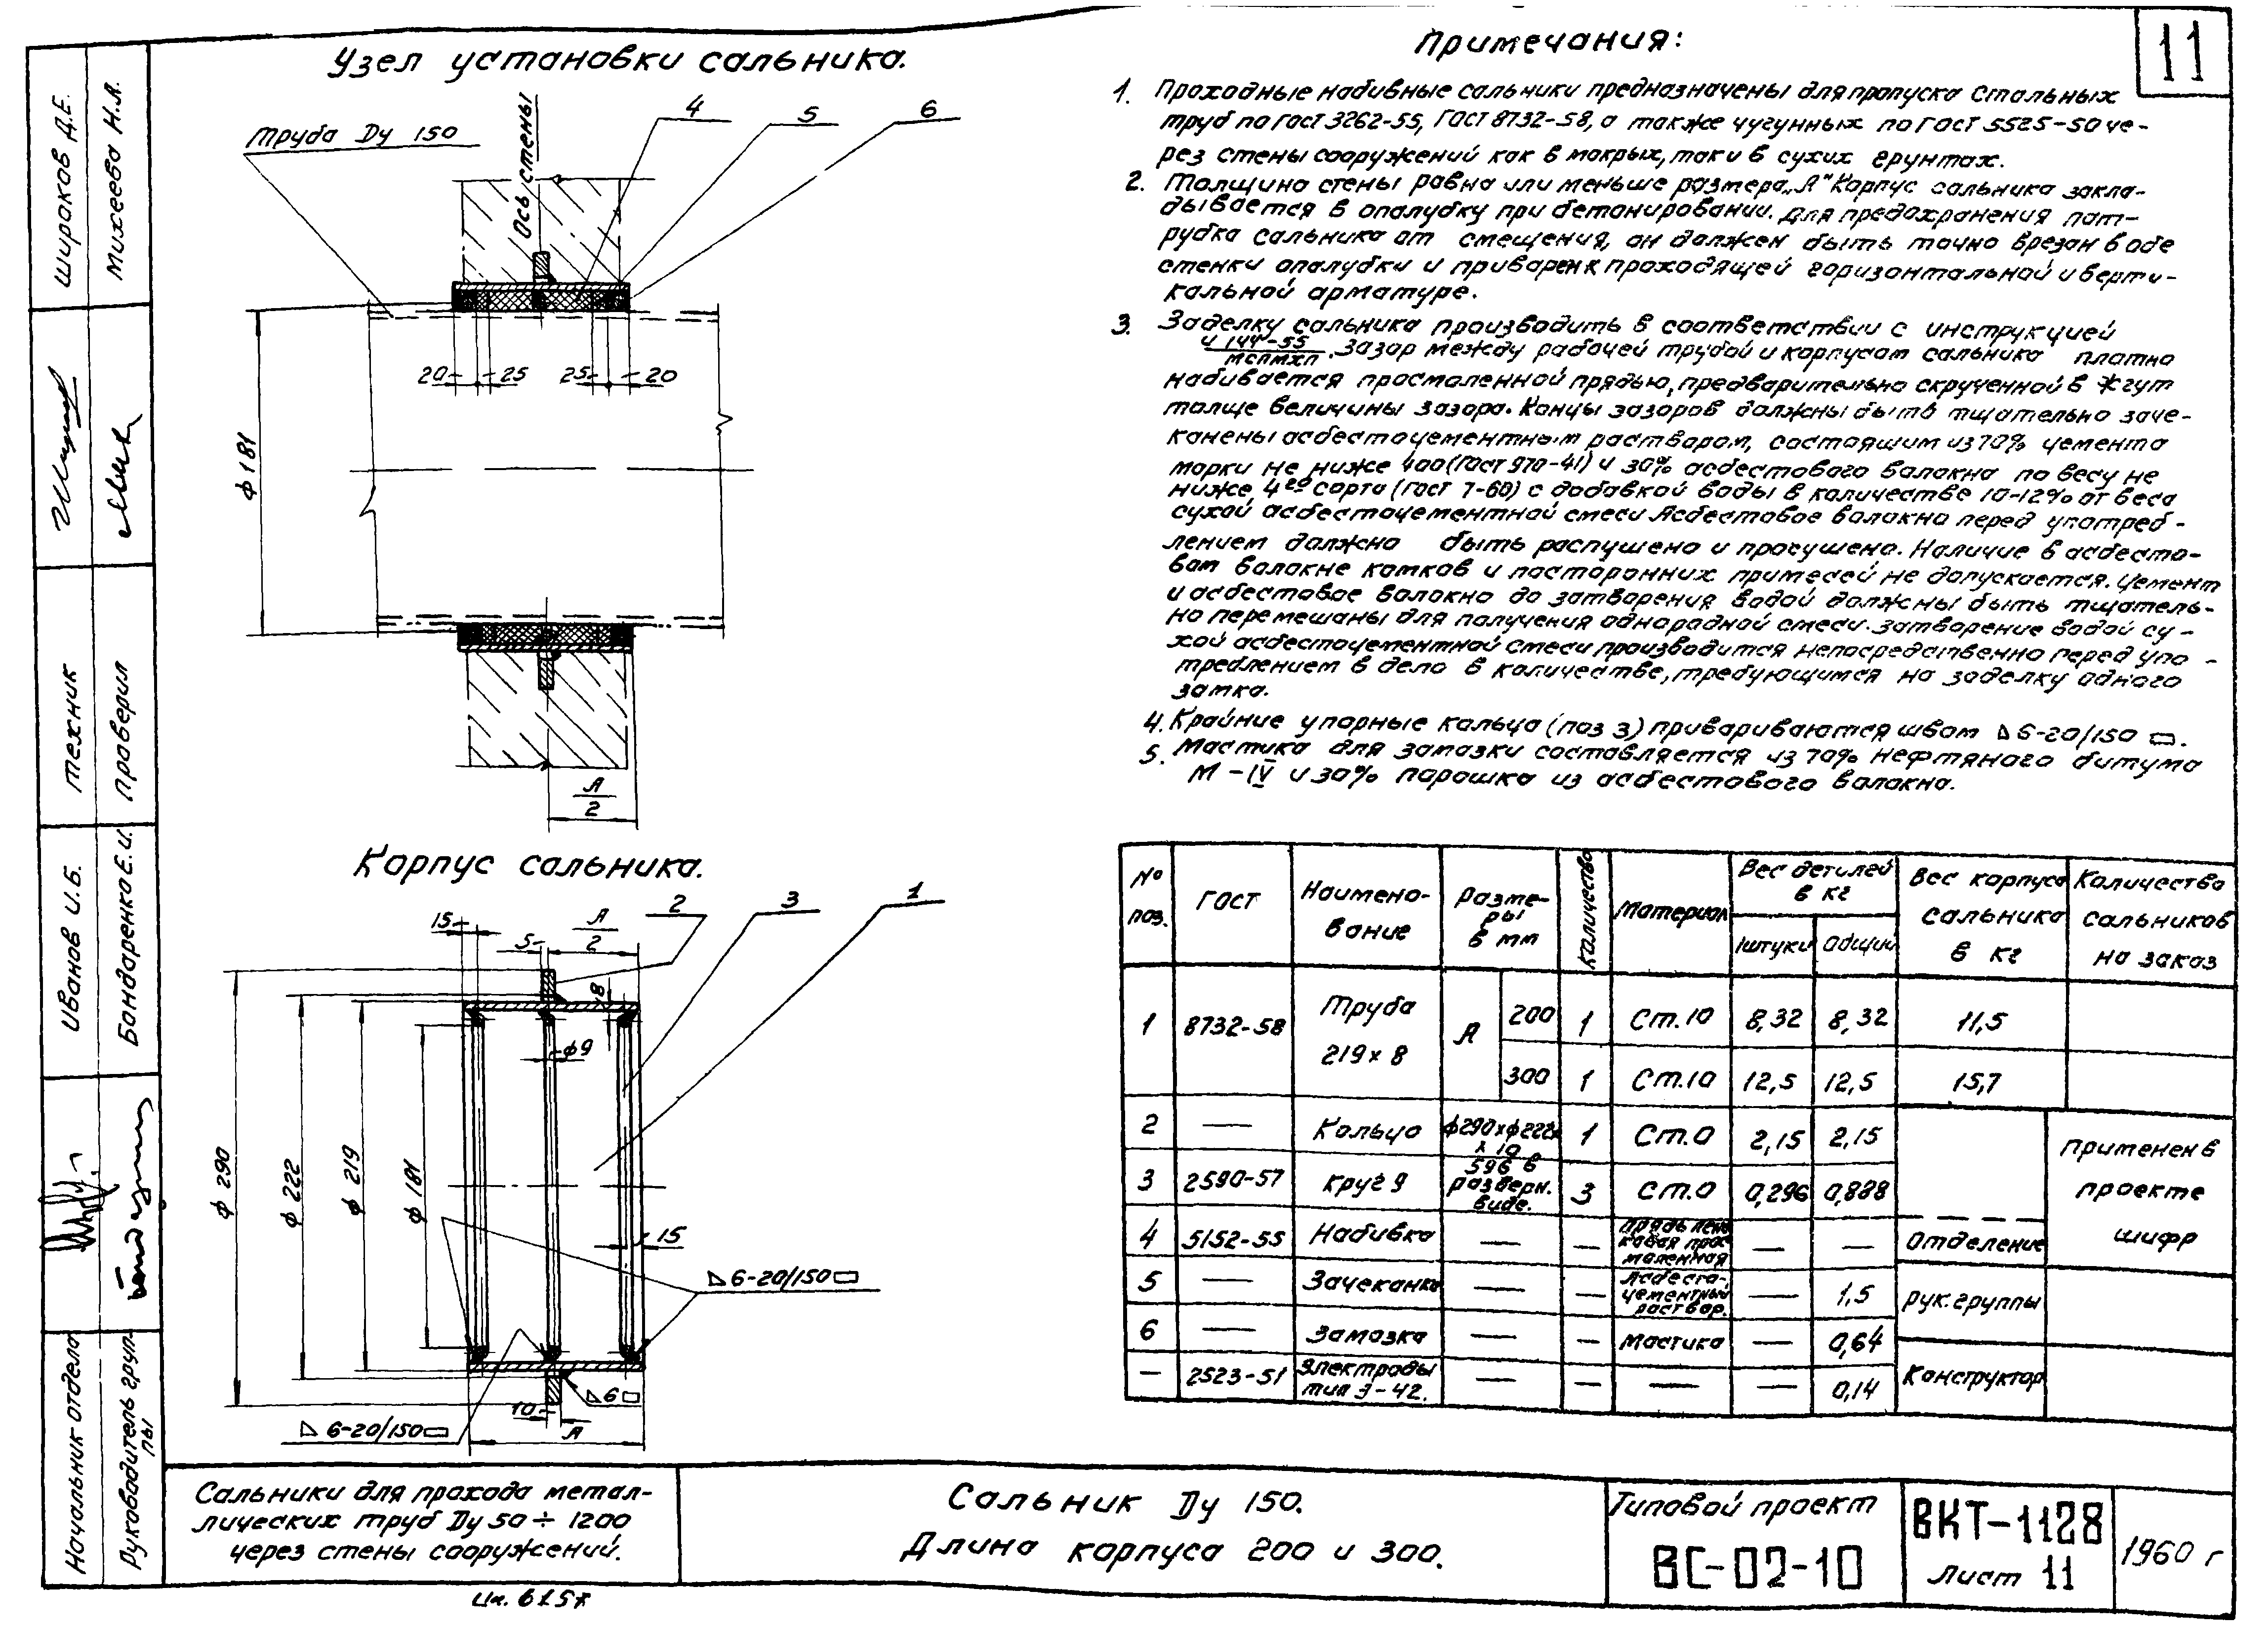 11
Узел установки сальника.
Труба Ду 150
Ось стены
4
5
6
20
25
25
20
ϕ 181
А
2
Корпус сальника.
15
5
А
2
2
3
1
8
ϕ9
ϕ 290
ϕ 222
ϕ 219
ϕ 181
15
6-20/150
6
10
А
6-20/150
Примечания:
1. Проходные набивные сальники предназначены для пропуска стальных
труб по гост 3262-55, ГОСТ 8732-58, а также чугунных по гост 5525-50 че-
рез стены сооружений как в мокрых, так и в сухих грунтах.
2. Толщина стены равна или меньше размера „А" Корпус сальника закла-
дывается в опалубку при бетонировании. Для предохранения пат-
рубка сальника от смещения, он должен быть точно врезан в обе
стенки опалубки и приварен к проходящей горизонтальной и верти-
кальной арматуре.
3. Заделку сальника производить в соответствии с инструкцией
И 144-55
мспмхп . Зазор между рабочей трубой и корпусом сальника плотно
набивается просмоленной прядью, предварительно скрученной в жгут
толще величины зазора. Концы зазоров должны быть тщательно заче-
канены асбестоцементным раствором, состоящим из 70% цемента
марки не ниже 400 (гост 970-41) и 30% асбестового волокна по весу не
ниже 4го сорта (гост 7-60) с добавкой воды в количестве 10-12% от веса
сухой асбестоцементной смеси Асбестовое волокно перед употреб-
лением должно быть распушено и просушено. Наличие в асбесто-
вом волокне комков и посторонних примесей не допускается. Цемент
и асбестовое волокно до затворения водой должны быть тщатель-
но перемешаны для получения однородной смеси. Затворение водой су-
хой асбестоцементной смеси производится непосредственно перед упо-
треблением в дело в количестве, требующимся на заделку одного
замка.
4. Крайние упорные кольца (поз 3) привариваются швом 6-20/150 .
5. Мастика для замазки составляется из 70% нефтяного битума
М-IV и 30% порошка из асбестового волокна.
№ поз. ГОСТ Наимено-вание Разме-ры в мм Количество Материал Вес деталей в кг Вес корпуса сальника в кг Количество сальников на заказ
1штуки Общий
1 8732-58 Труба 219×8 А 200 1 Ст.10 8,32 8,32 11,5
300 1 Ст.10 12,5 12,5 15,7
2 — Кольцо ϕ290×ϕ222×10 1 Ст.0 2,15 2,15
3 2590-57 Круг 9 596 в разверн. виде. 3 Ст.0 0,296 0,888
4 5152-55 Набивка — — Прядь пеньковая просмоленная — —
5 — Зачеканка — — Асбесто-цементный раствор. — 1,5
6 — Замазка — — Мастика — 0,64
— 2523-51 Электроды тип Э-42. — — — — 0,14
Применен в
проекте
шифр
Отделение
Рук. группы
Конструктор
Широков Д.Е.
Михеева Н.А.
Техник
Проверил
Иванов И.Б.
Бондаренко Е.И.
Начальник отдела
Руководитель груп-
пы
Сальники для прохода метал-
лических труб Ду 50 ÷ 1200
через стены сооружений.
Сальник Ду 150.
Длина корпуса 200 и 300.
Типовой проект
ВС-02-10
ВКТ-1128
Лист 11
1960 г